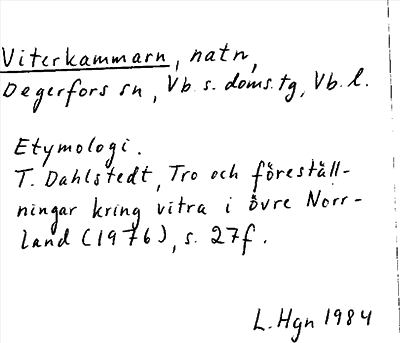 Viterkammarn, natn,
Degerfors sn, Vb s. doms.tg, Vb. l.
Etymologi.
T. Dahlstedt, Tro och föreställ-
ningar kring vitra i övre Norr-
land (1976), s. 27f.
L. Hgn 1984